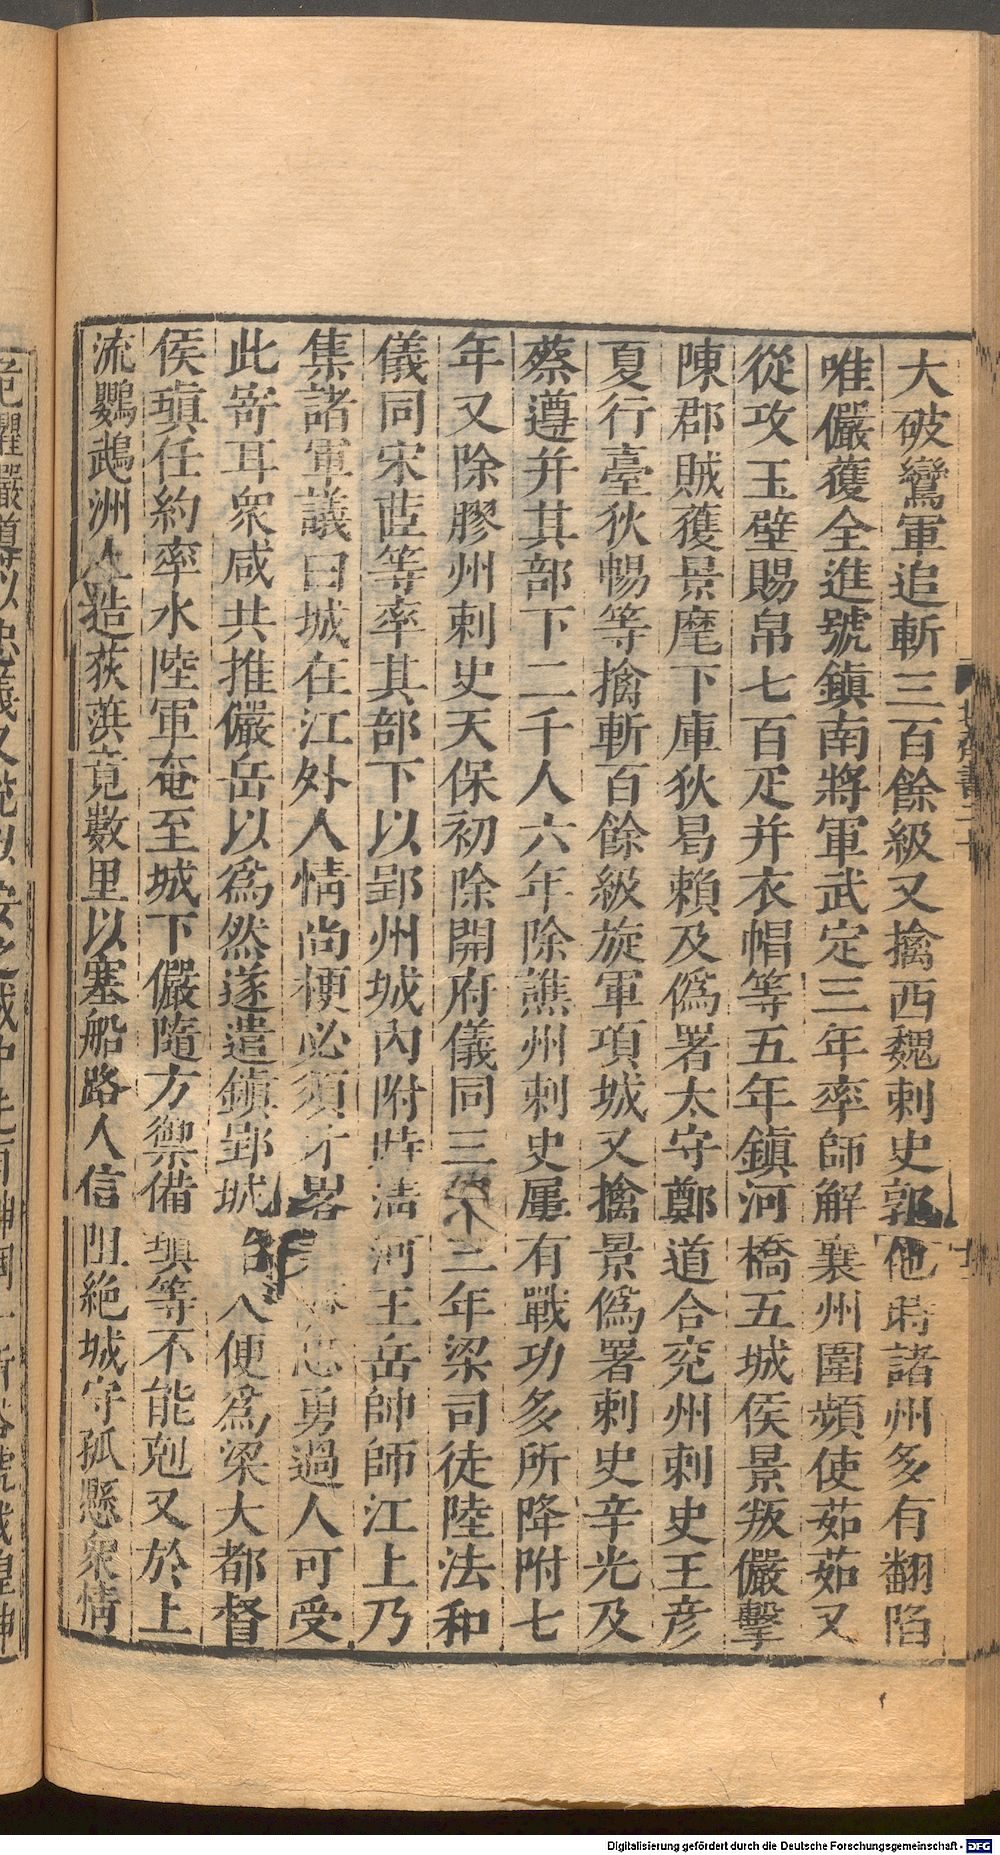 大破鸞軍追斬三百餘級又擒西魏刺史郭他時諸州多有翻陷
唯儼獲全進號鎮南將軍武定三年率師解襄州圍頻使茹茹又
從攻玉壁賜帛七百疋并衣帽等五年鎮河橋五城侯景叛儼擊
陳郡賊獲景麾下庫狄曷賴及偽署太守鄭道合兖州刺史王彦
夏行臺狄暢等擒斬百餘級旋軍項城又擒景偽署刺史辛光及
蔡遵并其部下二千人六年除譙州刺史屢有戰功多所降附七
年又除膠州刺史天保初除開府儀同三 三年梁司徒陸法和
儀同宋茝等率其部下以郢州城內附時清河王岳帥師江上乃
集諸軍議曰城在江外人情尚梗必須才畧 忠勇過人可受
此寄耳衆咸共推儼岳以爲然遂遣鎮郢城 入便爲梁大都督
侯瑱任約率水陸軍奄至城下儼隨方禦備瑱等不能剋又於上
流鸚鵡洲上造荻葓竟數里以塞船路人信阻絶城守孤懸衆情
Digitalisierung gefördert durch die Deutsche Forschungsgemeinschaft - DFG